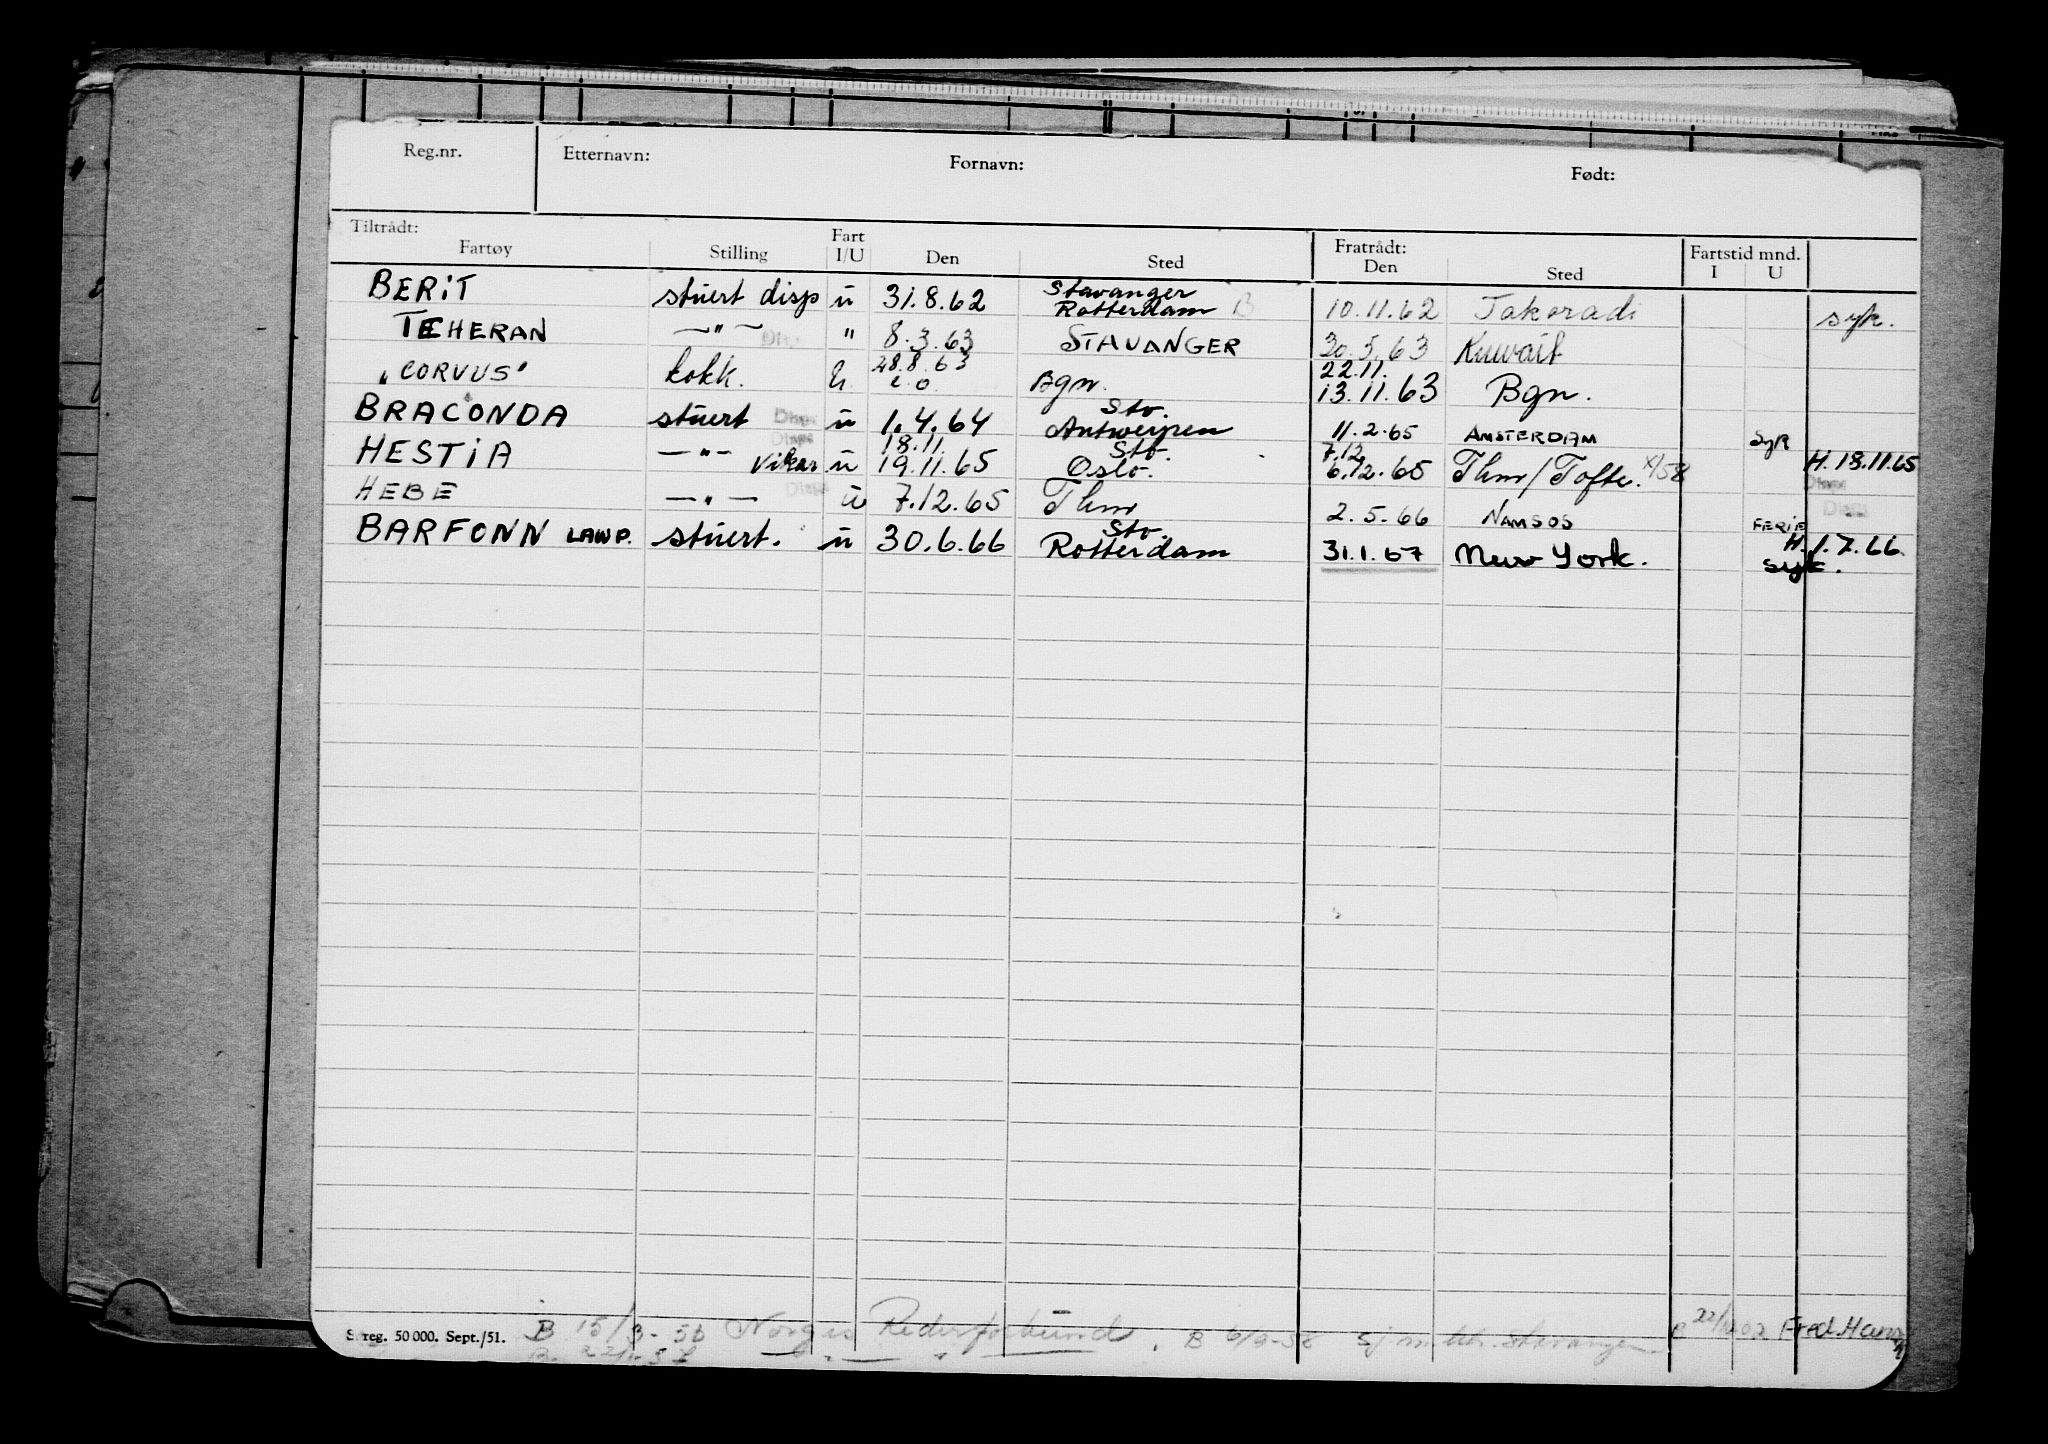 Reg.nr. Etternavn: Fornavn: Født:
Tiltrådt: Fratrådt: Fartstid mnd.
Fartøy Stilling Fart I/U Den Sted Den Sted I U
BERIT stuert disp u 31.8.62 Stavanger Rotterdam B 10.11.62 Takoradi syk.
TEHERAN —"— Disp " 8.3.63 STAVANGER 30.5.63 Kuwait
"CORVUS" kokk. 28.8.63 Bgn. 22.11. 13.11.63 Bgn.
BRACONDA stuert Disps u 1.4.64 Stv. Antwerpen 11.2.65 AMSTERDAM syk
HESTIA —"— Disps vikar u 18.11. 19.11.65 Stv. Oslo. 7.12 6.12.65 Thm/Tofte. x/58 H. 18.11.65
HEBE —"— Disps u 7.12.65 Thm 2.5.66 NAMSOS FERIE
BARFONN LAWP. stuert. u 30.6.66 Stv. Rotterdam 31.1.67 New York. H. 1.7.66 syk.
S. reg. 50 000. Sept./51. B 15/3-56 Norges Rederforbund. B 6/9-58 Stavanger Fred. Hans
B.